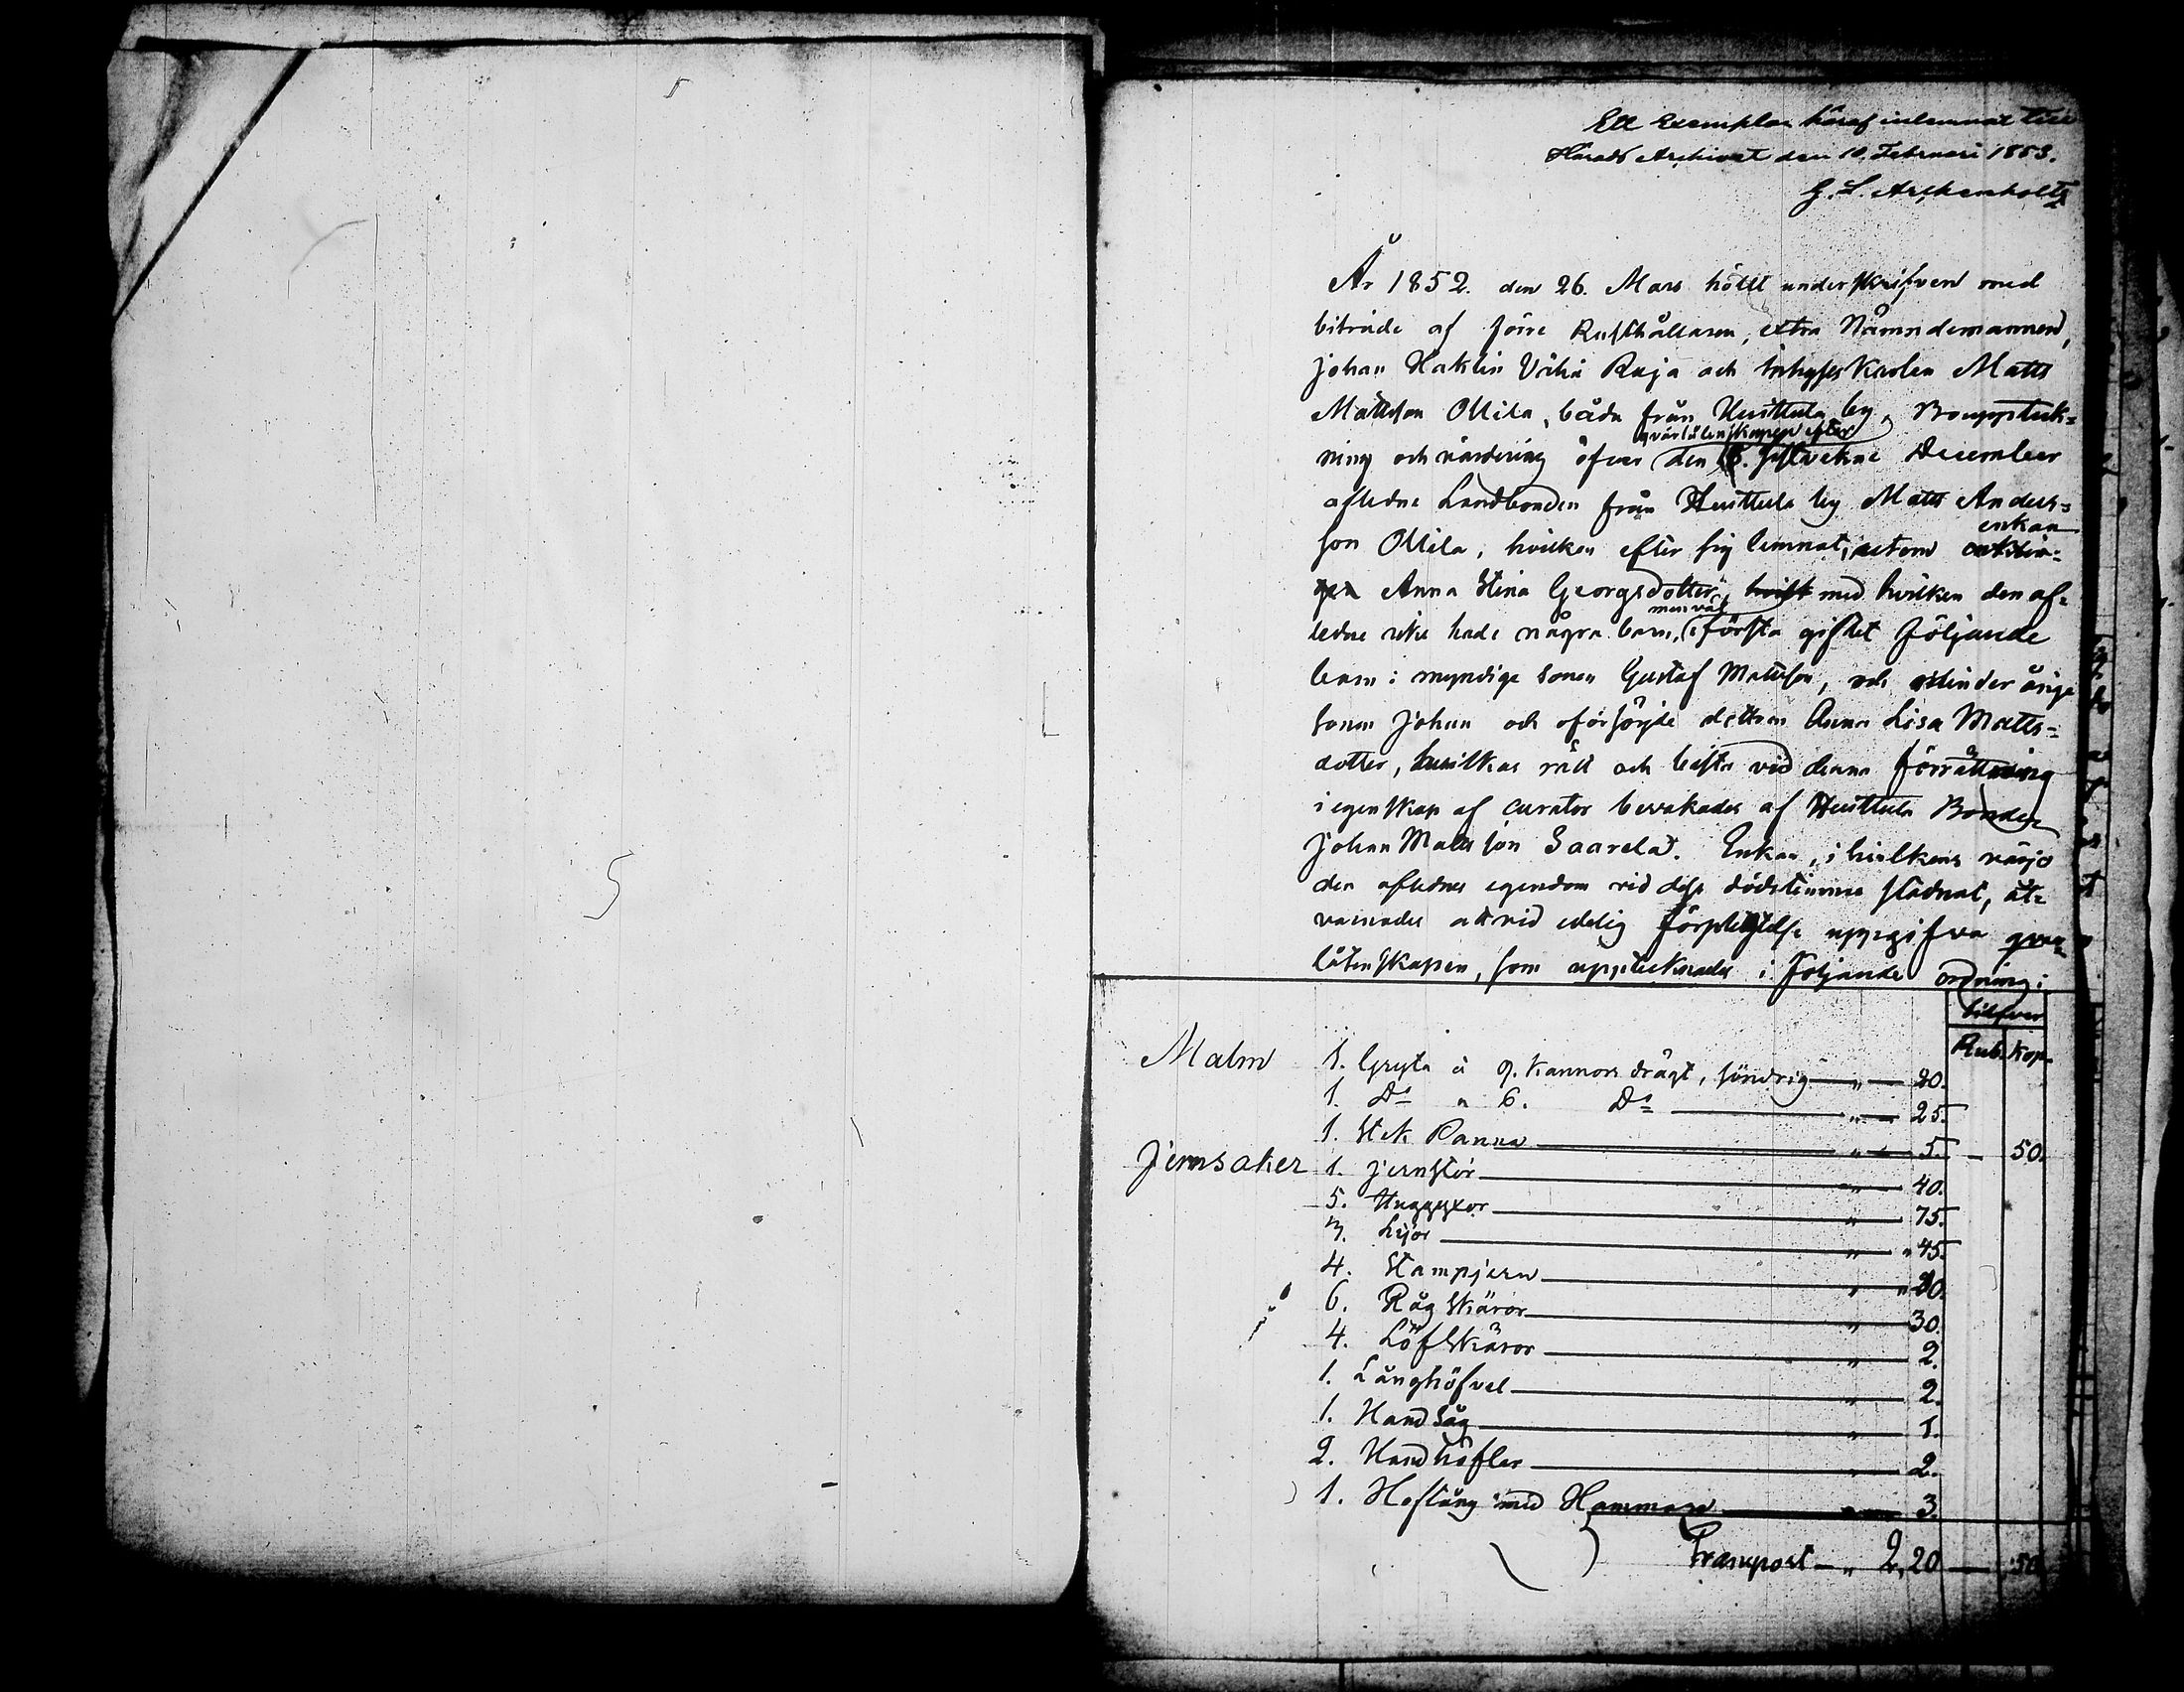 Ett Exemplar häraf inlemnat till
Härads Archivet den 10. Februari 1853.
G. L. Archenholtz
År 1852. den 26. Mars höllt underskrifven med
biträde af förre Rusthållaren, extra Nämndemannen,
Johan Håklin Vähä Ruja och inhyses Karlen Matts
Mattsson Ollila, båda från Huittula by, Bouppteck=
qvarlåtenskapen efter
ning och värdering öfver den 18. sistvekne December
aflidne Landbonden från Huittula by Matts Anders=
enkan
son Ollila, hvilken efter sig lemnat, utom
Anna Stina Georgsdotter, med hvilken den af=
men väl
ledne icke hade några barn, i första giftet följande
barn: myndige sonen Gustaf Mattsson, och minderårige
sonen Johan och oförsörjde dottren Anna Lisa Matts=
dotter, hvilkas rätt och bästa vid denna förrättning
i egenskap af curator bevakades af Huittula Bonden
Johan Mattsson Saarela. Enkan, i hvilkens värjo
den aflidnes egendom vid dess dödstimma stadnat, åt=
varnades att vid edelig förpligtelse uppgifva qvar=
låtenskapen, som upptecknades i följande ordning:
Silfver
Rub. Kop.
Malm 1. Gryta à 9. kannors drägt, söndrig — " — 20.
1. Do " 6. Do — " — 25.
1. Stek Panna — " — 5. — 50.
Jernsaker 1. Jernstör — " — 40.
5. Huggyxor — " — 75.
3. Lijor — " — " 45.
4. Stampjern — " — " 20.
6. Råg Skäror — " — 30.
4. Löfskäror — " — 2.
1. Långhöfvel — " — 2.
1. Hand Såg — " — 1.
2. Handhöflar — " — 2.
1. Hoftång med Hammare — " — 3.
Transport — " 2,20 — 50